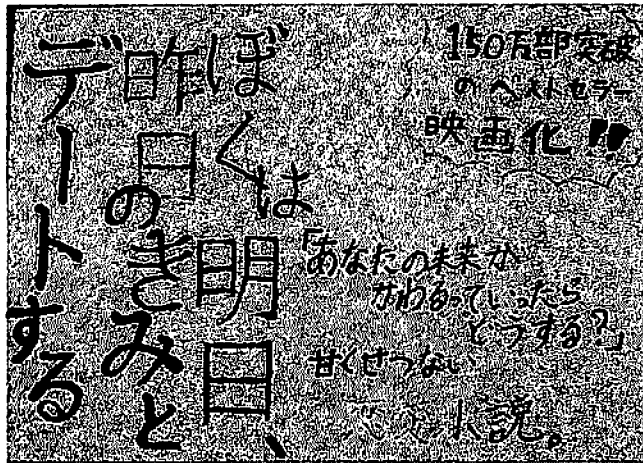 ぼくは明日、
昨日のきみと
デートする
150万部突破
のベストセラー
映画化!!
「あなたの未来が
わかるっていったら
どうする?」
甘くせつない
小説。